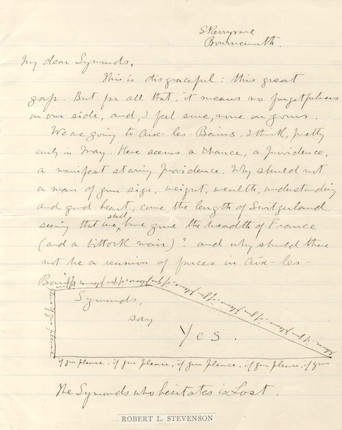 Skerryvore
Bournemouth.
My dear Symonds,
This is disgraceful: this great
gap. But for all that, it means no forgetfulness
on one side, and, I feel sure, none on yours.
We are going to Aix-les-Bains, I think, pretty
early in May. Here seems a chance, a providence,
a manifest staring Providence. Why should not
a man of your size, weight, wealth, understanding
and good heart, come the length of Switzerland
seeing that we shall have gone the breadth of France
(and a bittock mair)? and why should there
not be a reunion of in Aix-les-
Bains
Symonds,
say
Yes.
if you please, if you please, if you please, if you please, if you
The Symonds who hesitates is Lost.
ROBERT L. STEVENSON